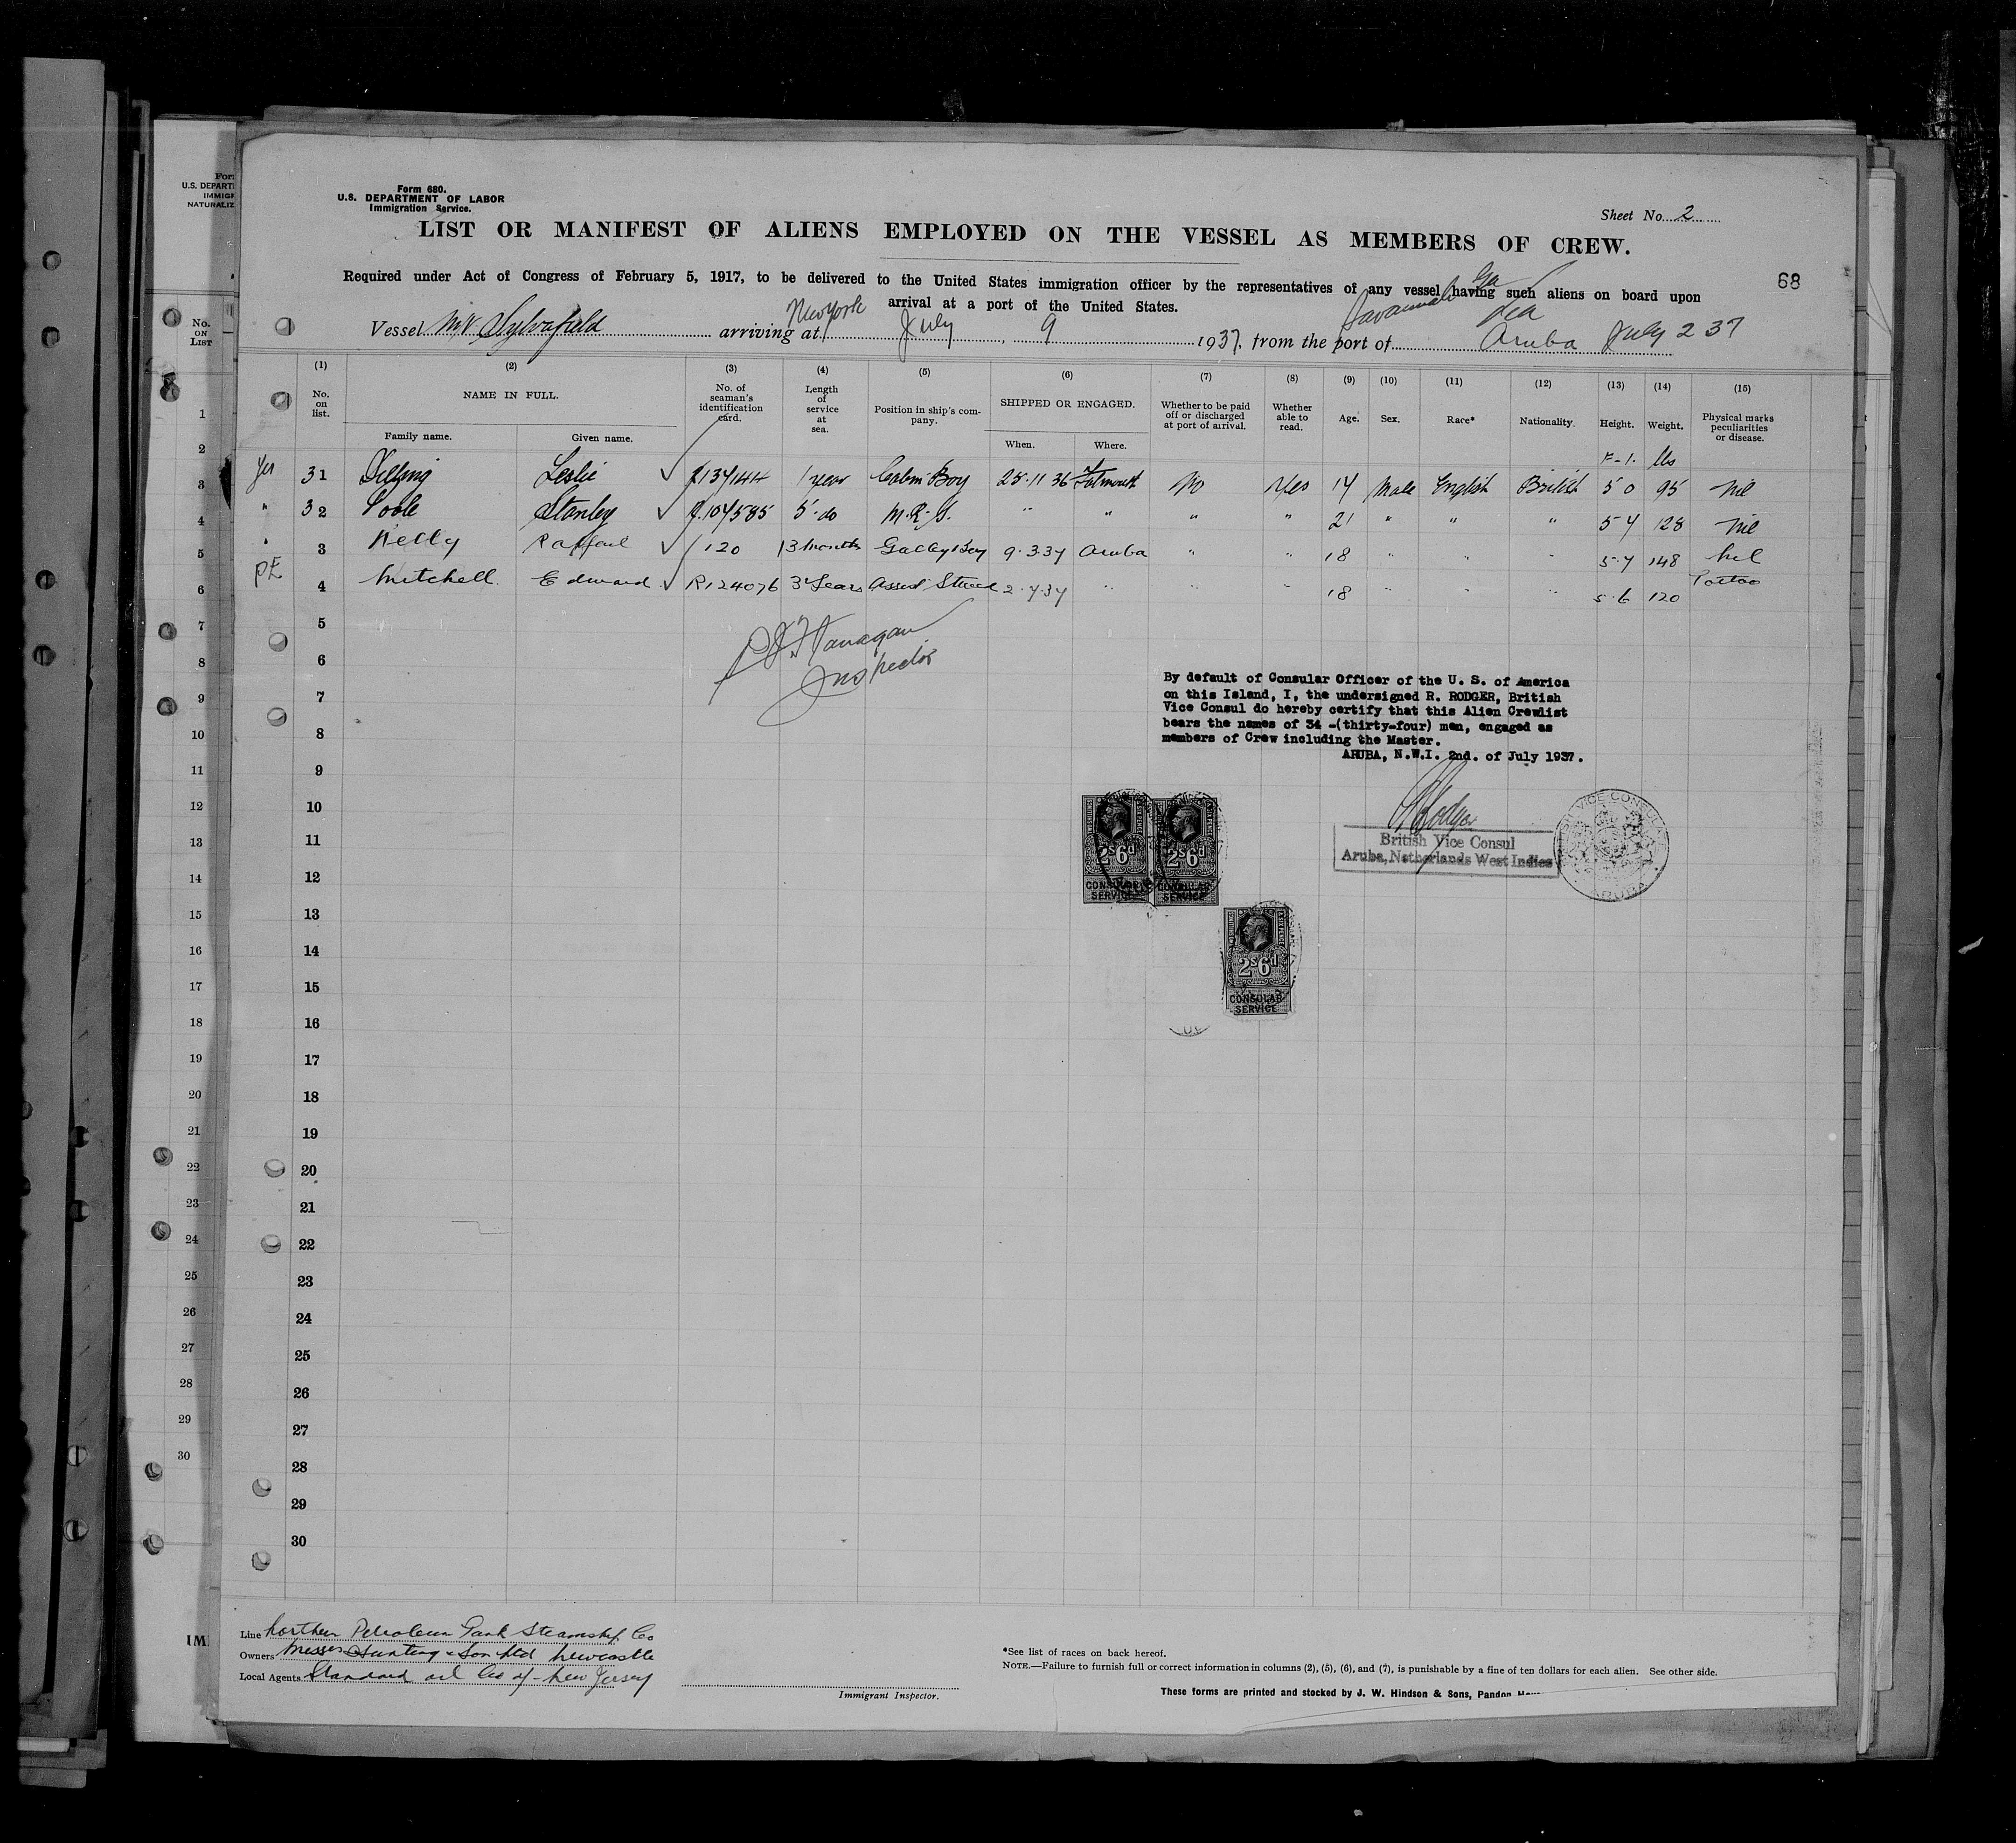 Form 680.
U.S. DEPARTMENT OF LABOR
Immigration Service.
Sheet No. 2
LIST OR MANIFEST OF ALIENS EMPLOYED ON THE VESSEL AS MEMBERS OF CREW.
68
Required under Act of Congress of February 5, 1917, to be delivered to the United States immigration officer by the representatives of any vessel having such aliens on board upon
arrival at a port of the United States.
Savannah Ga
Vessel M/V Sylvafield arriving at New York July 9 1937, from the port of Aruba July 2 37
(1) (2) (3) (4) (5) (6) (7) (8) (9) (10) (11) (12) (13) (14) (15)
No. on list. NAME IN FULL. Family name. Given name. No. of seaman's identification card. Length of service at sea. Position in ship's company. SHIPPED OR ENGAGED. When. Where. Whether to be paid off or discharged at port of arrival. Whether able to read. Age. Sex. Race* Nationality. Height. Weight. Physical marks peculiarities or disease.
lbs
Yes 31 Leslie 1 year Cabin Boy 25.11 36 Falmouth No Yes 17 Male English British 5 0 95 Nil
" 32 Poole Stanley 5 do M.R.S. " " " " 21 " " " 5 7 128 Nil
" 3 Kelly 120 13 months Galley Boy 9.3.37 Aruba " " 18 " " " 5.7 148 Nil
P.E. 4 Mitchell Edward R124076 3 Years Asst Stwd 2.7.37 " " " 18 " " " 5.6 120 Tattoo
5
6
Inspector
7
8
9
10
11
12
13
14
15
16
17
18
19
20
21
22
23
24
25
26
27
28
29
30
By default of Consular Officer of the U. S. of America
on this Island, I, the undersigned R. RODGER, British
Vice Consul do hereby certify that this Alien Crewlist
bears the names of 34 -(thirty-four) men, engaged as
members of Crew including the Master.
ARUBA, N.W.I. 2nd. of July 1937.
R Rodger
British Vice Consul
Aruba, Netherlands West Indies
2s6d
CONSULAR
SERVICE
2s6d
CONSULAR
SERVICE
2s6d
CONSULAR
SERVICE
Line Northern Petroleum Tank Steamship Co
Owners Messrs Hunting & Son Ltd Newcastle
Local Agents Standard oil Co of New Jersey
Immigrant Inspector.
*See list of races on back hereof.
NOTE.—Failure to furnish full or correct information in columns (2), (5), (6), and (7), is punishable by a fine of ten dollars for each alien. See other side.
These forms are printed and stocked by J. W. Hindson & Sons, Pandon